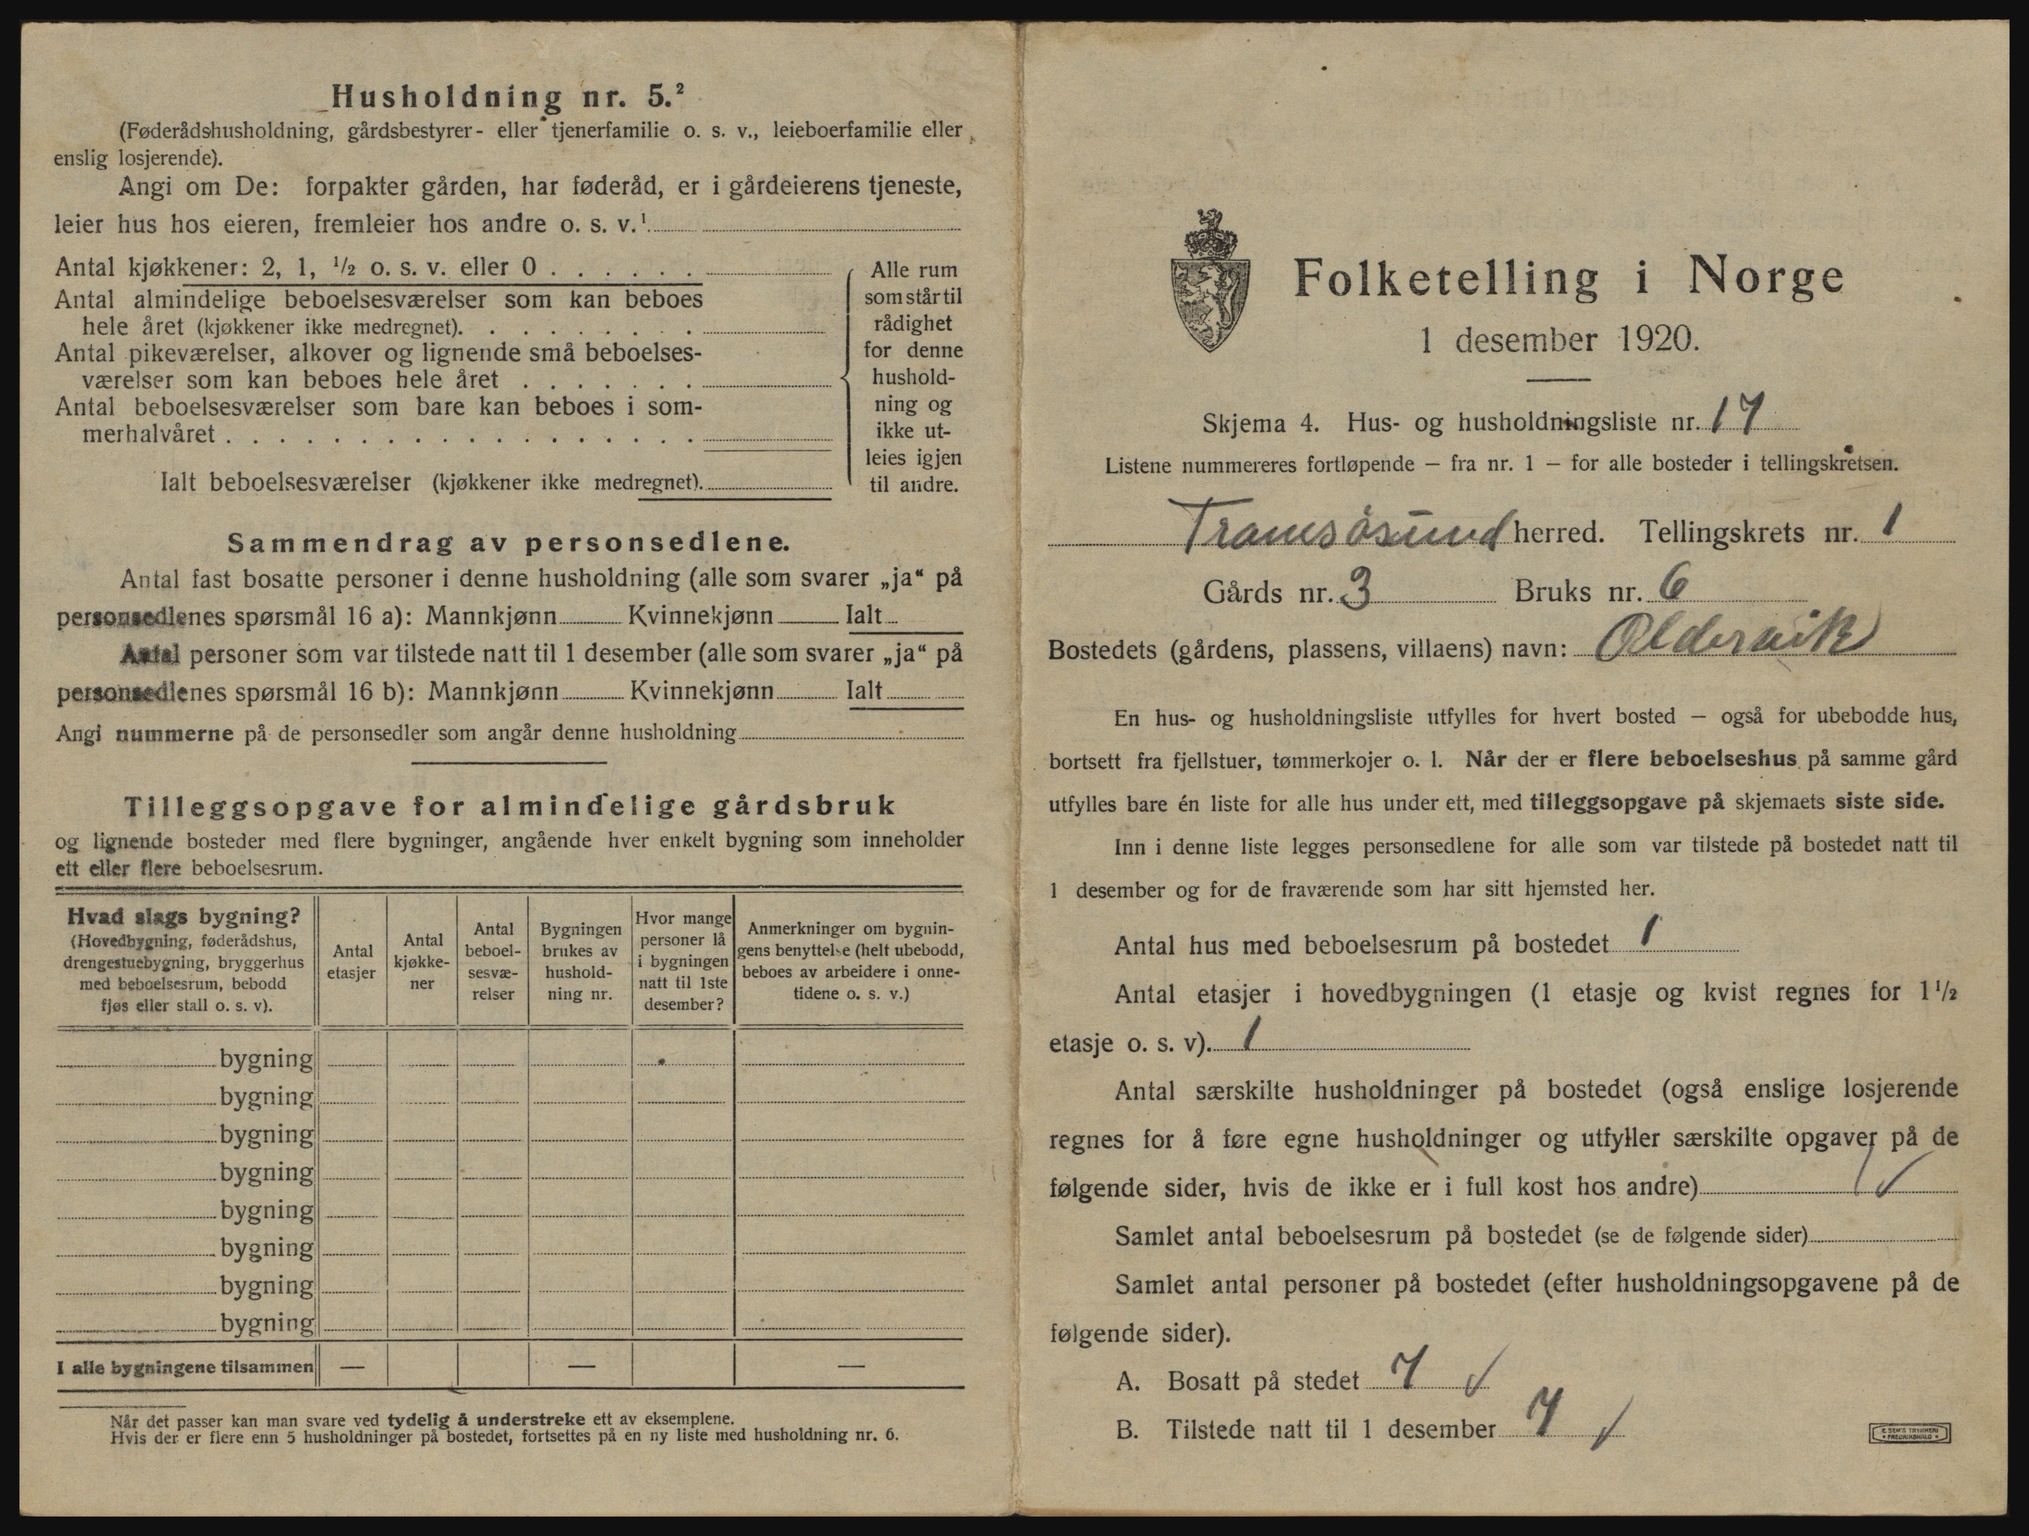 Husholdning nr. 5.²
(Føderådshusholdning, gårdsbestyrer- eller tjenerfamilie o. s. v., leieboerfamilie eller
enslig losjerende).
Angi om De: forpakter gården, har føderåd, er i gårdeierens tjeneste,
leier hus hos eieren, fremleier hos andre o. s. v.¹
Antal kjøkkener: 2, 1, ½ o. s. v. eller 0 . . . . . .
Antal almindelige beboelsesværelser som kan beboes
hele året (kjøkkener ikke medregnet). . . . . . . . . .
Antal pikeværelser, alkover og lignende små beboelses-
værelser som kan beboes hele året . . . . . . .
Antal beboelsesværelser som bare kan beboes i som-
merhalvåret . . . . . . . . . . . . . . . . . .
Ialt beboelsesværelser (kjøkkener ikke medregnet).
Alle rum
som står til
rådighet
for denne
hushold-
ning og
ikke ut-
leies igjen
til andre.
Sammendrag av personsedlene.
Antal fast bosatte personer i denne husholdning (alle som svarer „ja“ på
personsedlenes spørsmål 16 a): Mannkjønn Kvinnekjønn Ialt
Antal personer som var tilstede natt til 1 desember (alle som svarer „ja“ på
personsedlenes spørsmål 16 b): Mannkjønn Kvinnekjønn Ialt
Angi nummerne på de personsedler som angår denne husholdning
Tilleggsopgave for almindelige gårdsbruk
og lignende bosteder med flere bygninger, angående hver enkelt bygning som inneholder
ett eller flere beboelsesrum.
Hvad slags bygning?
(Hovedbygning, føderådshus,
drengestuebygning, bryggerhus
med beboelsesrum, bebodd
fjøs eller stall o. s. v).
Antal
etasjer
Antal
kjøkke-
ner
Antal
beboel-
sesvæ-
relser
Bygningen
brukes av
hushold-
ning nr.
Hvor mange
personer lå
i bygningen
natt til 1ste
desember?
Anmerkninger om bygnin-
gens benyttelse (helt ubebodd,
beboes av arbeidere i onne-
tidene o. s. v.)
bygning
bygning
bygning
bygning
bygning
bygning
bygning
bygning
I alle bygningene tilsammen — — —
Når det passer kan man svare ved tydelig å understreke ett av eksemplene.
Hvis der er flere enn 5 husholdninger på bostedet, fortsettes på en ny liste med husholdning nr. 6.
Folketelling i Norge
1 desember 1920.
Skjema 4. Hus- og husholdningsliste nr. 17
Listene nummereres fortløpende — fra nr. 1 — for alle bosteder i tellingskretsen.
Tromsøsund herred. Tellingskrets nr. 1
Gårds nr. 3 Bruks nr. 6
Bostedets (gårdens, plassens, villaens) navn: Oldervik
En hus- og husholdningsliste utfylles for hvert bosted — også for ubebodde hus,
bortsett fra fjellstuer, tømmerkojer o. l. Når der er flere beboelseshus på samme gård
utfylles bare én liste for alle hus under ett, med tilleggsopgave på skjemaets siste side.
Inn i denne liste legges personsedlene for alle som var tilstede på bostedet natt til
1 desember og for de fraværende som har sitt hjemsted her.
Antal hus med beboelsesrum på bostedet 1
Antal etasjer i hovedbygningen (1 etasje og kvist regnes for 1½
etasje o. s. v). 1
Antal særskilte husholdninger på bostedet (også enslige losjerende
regnes for å føre egne husholdninger og utfyller særskilte opgaver på de
følgende sider, hvis de ikke er i full kost hos andre) 1 ✓
Samlet antal beboelsesrum på bostedet (se de følgende sider)
Samlet antal personer på bostedet (efter husholdningsopgavene på de
følgende sider).
A. Bosatt på stedet 7 ✓
B. Tilstede natt til 1 desember 7 ✓
E. SEM'S TRYKKERI
• FREDRIKSHALD •